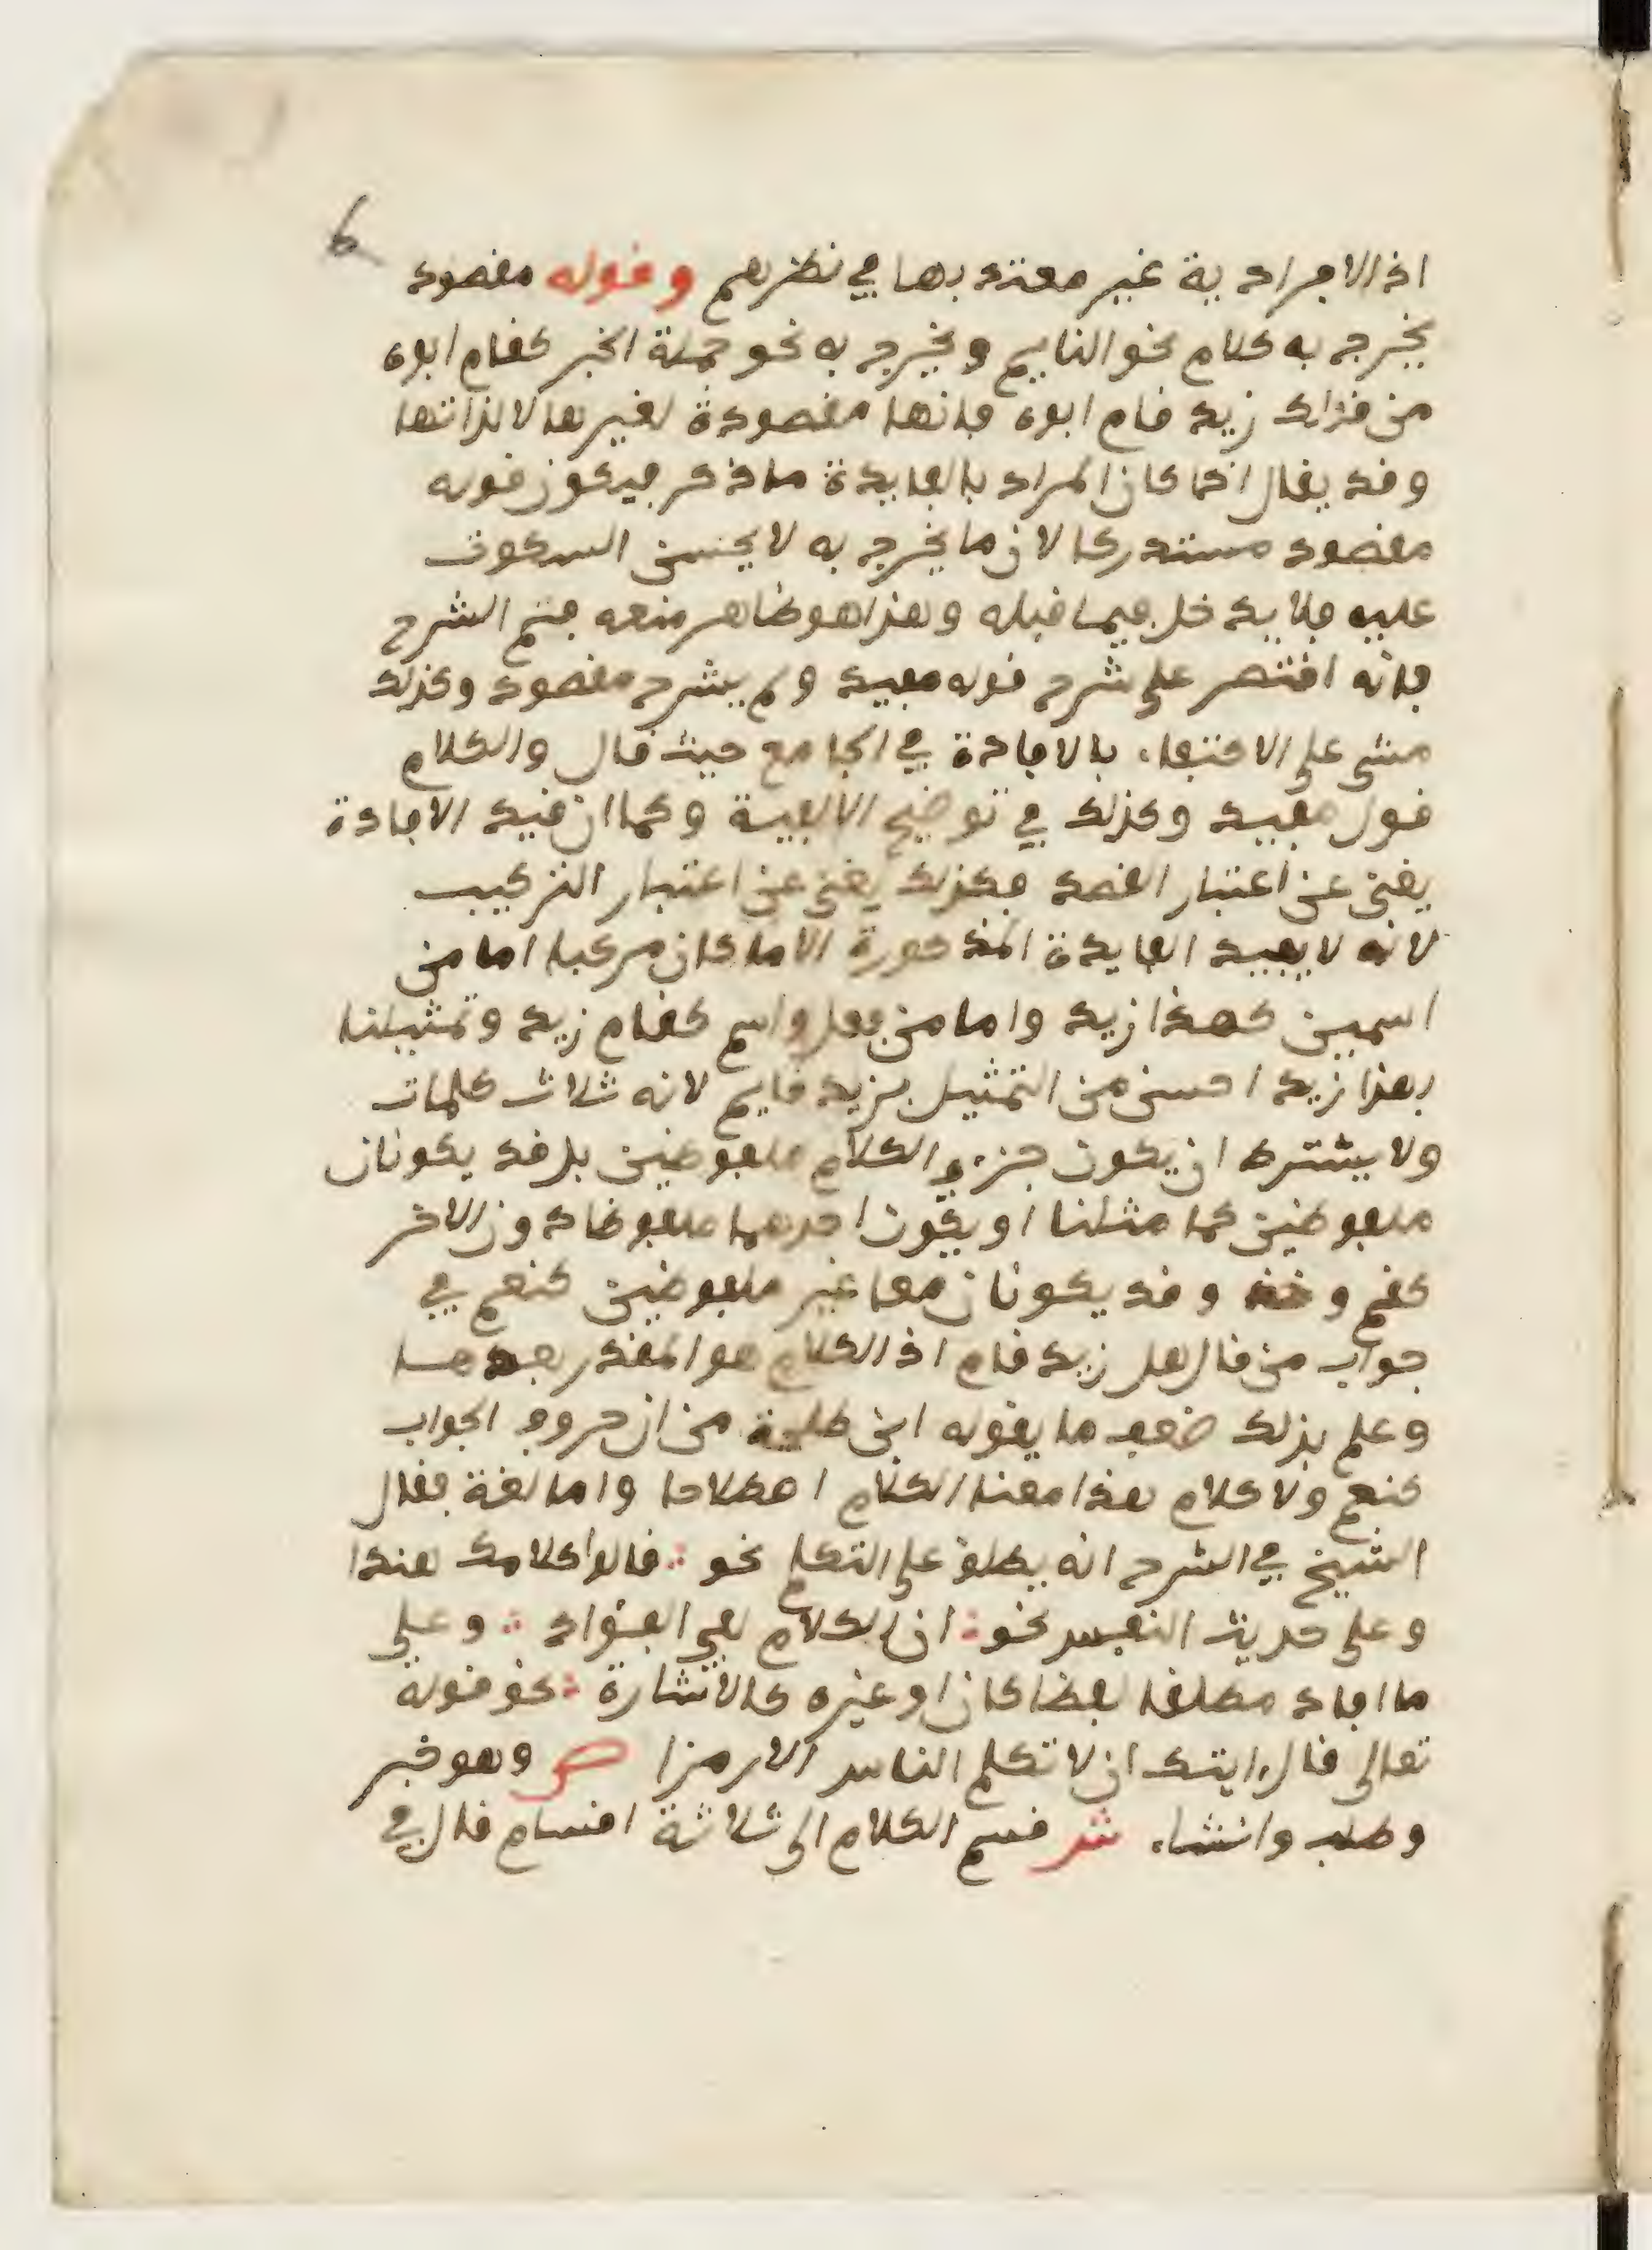 6
اذ الافرادية غير معتد بها في نظرهم وقوله مقصود
يخرج به كلام نحو النايم ويخرج به نحو جملة الخبر كقام ابوه
من قولك زيد قام ابوه فانها مقصودة لغيرها لا لذاتها
وقد يقال اذا كان المراد بالفايدة ما ذكر فيكون قوله
مقصود مستدركا لان ما يخرج به لا يحسن السكوت
عليه فلا يدخل فيما قبله وهذا هو ظاهر صنعه في الشرح
فانه اقتصر على شرح قوله مفيد ولم يشرح مقصود وكذلك
مشى على الاكتفاء بالافادة في الجامع حيث قال والكلام
قول مفيد وكذلك في توضيح الالفية وكما ان قيد الافادة
يغني عن اعتبار القصد فكذلك يغني عن اعتبار التركيب
لانه لا يفيد الفايدة المذكورة الا ما كان مركبا اما من
اسمين كهذا زيد واما من فعل واسم كقام زيد وتمثيلنا
بهذا زيد احسن من التمثيل بزيد قايم لانه ثلاث كلمات
ولا يشترط ان يكون جزءي الكلام ملفوظين بل قد يكونان
ملفوظين كما مثلنا او يكون احدهما ملفوظا دون الاخر
كقم وقد يكونان معا غير ملفوظين كنعم في
جواب من قال هل زيد قام اذ الكلام هو المقدر بعدها
وعلم بذلك ضعف ما يقوله ابن طلحة من ان حروف الجواب
كنعم ولا كلام هذا معنا الكلام اصطلاحا واما لغة فقال
الشيخ في الشرح انه يطلق على التكلم نحو ∴ قالوا كلامك هندا
وعلى حديث النفس نحو ∴ ان الكلام لفي الفؤاد ∴ وعلى
ما افاد مطلقا لفظا كان او غيره كالاشارة ∴ نحو قوله
تعالى قال ءايتك ان لا تكلم الناس الا رمزا ص وهو خبر
وطلب وانشاء ش قسم الكلام الى ثلاثة اقسام قال في